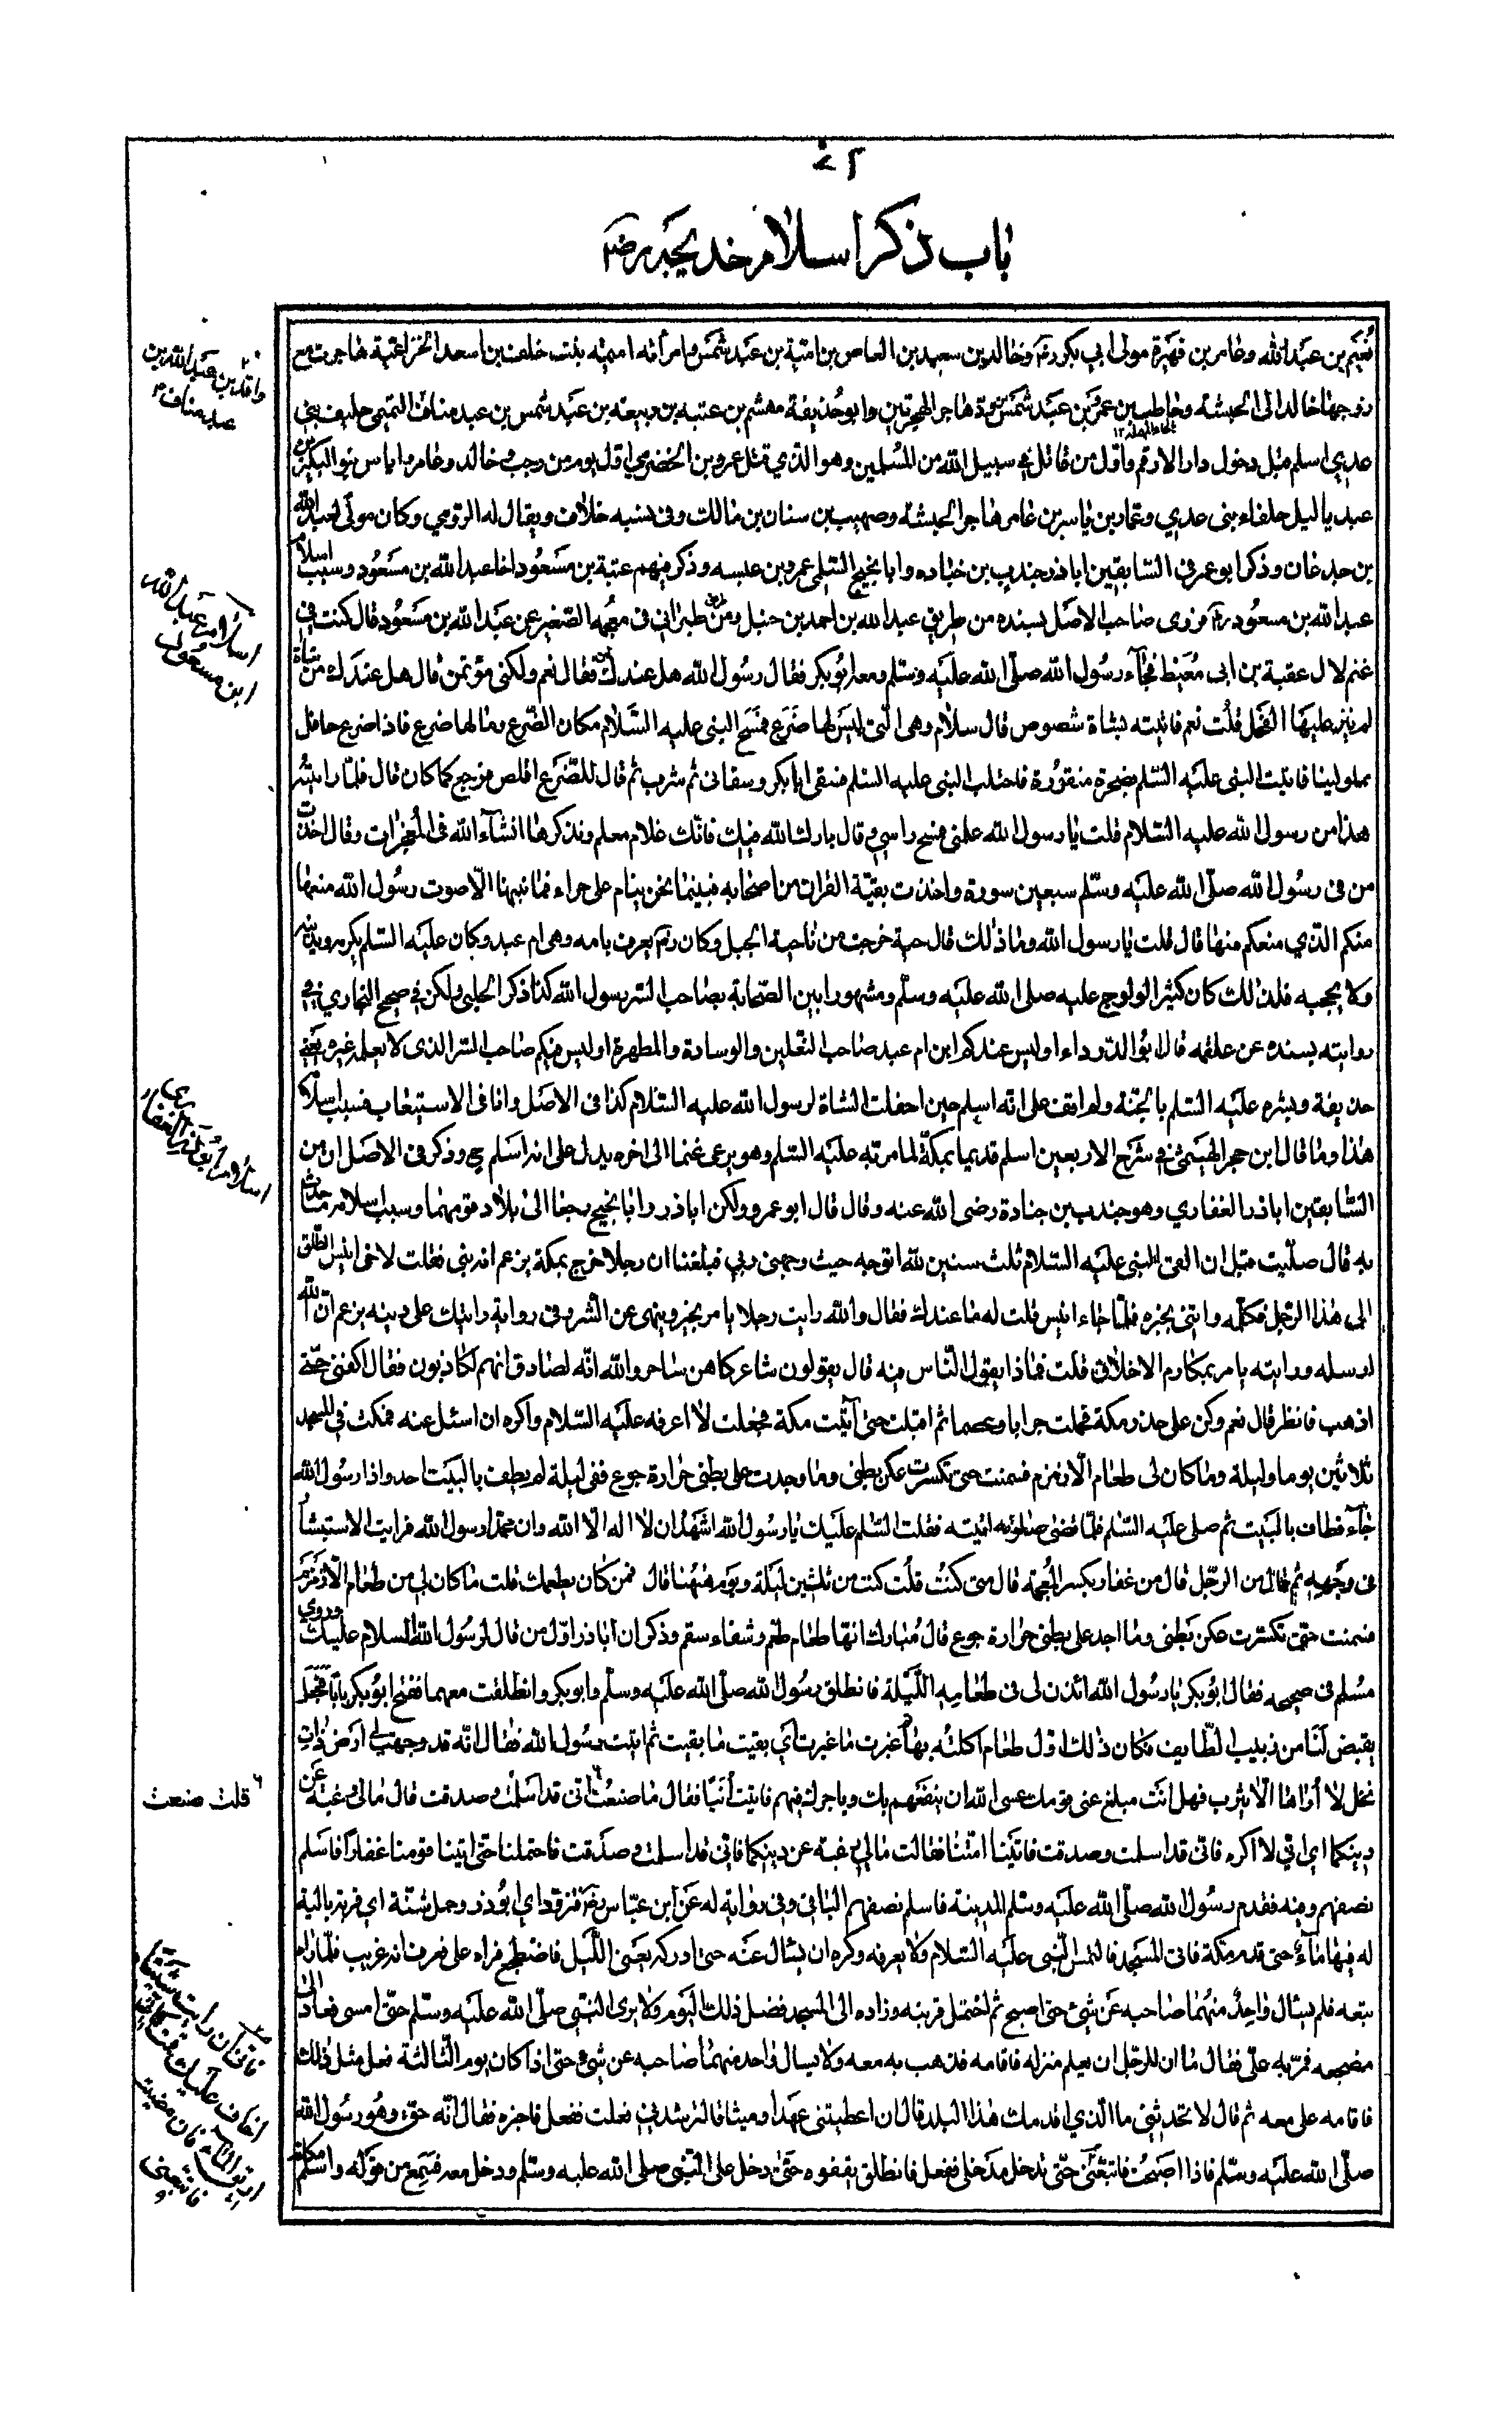 ٧٢
باب ذكر اسلام خديجة رض
نعيم بن عبد الله وعامر بن فهيرة مولى ابي بكر رض وخالد بن سعيد بن العاص بن امية بن عبد شمس وامرأته امينه بنت خلف بن اسعد الخزاعية هاجرت مع
زوجها خالد الى الحبشه وحاطب بن عمرو بن عبد شمس هاجر الهجرتين وابو حذيفة مهشم بن عتبه بن ربيعه بن عبد شمس بن عبد مناف التميمي حليف بني
عدي اسلم قبل دخول دار الارقم واول من قاتل في سبيل الله من المسلمين وهو الذي قتل عمرو بن الحضرمي اول يوم من رجب وخالد وعامر واياس بنو البكير بن
عبد ياليل حلفاء بني عدي وعمار بن ياسر بن عامر هاجر الحبشة وصهيب بن سنان بن مالك وفي نسبه خلاف ويقال له الرومي وكان مولى لعبد الله
بن جدعان وذكر ابو عمر في السابقين اباذر جندب بن جناده وابا نجيح السلمي عمرو بن عبسه وذكر فيهم عتبة بن مسعود اخا عبد الله بن مسعود وسبب اسلام
عبد الله بن مسعود رض روى صاحب الاصل بسنده من طريق عبد الله بن احمد بن حنبل ومن طبراني في معجمه الصغير عن عبد الله بن مسعود قال كنت في
غنم لال عقبة بن ابي معيط فجاء رسول الله صلى الله عليه وسلم ومعه ابو بكر فقال رسول الله هل عندك لبن فقال نعم ولكني مؤتمن قال هل عندك من شاة
لم ينز عليها الفحل قلت نعم فاتيته بشاة شصوص قال سلام وهي التي ليس لها ضرع فمسح النبي عليه السلام مكان الضرع وما لها ضرع فاذا ضرع حافل
مملو لبنا فاتيت النبي عليه السلم بصخرة منقورة فاحتلب النبي عليه السلم فسقى ابا بكر وسقاني ثم شرب ثم قال للضرع اقلص فرجع كما كان قال فلما رايت
هذا من رسول الله عليه السلام قلت يا رسول الله علمني فمسح راسي وقال بارك الله فيك فانك غلام معلم ونذكرها انشاء الله في المعجزات وقال اخذت
من في رسول الله صلى الله عليه وسلم سبعين سورة واخذت بقية القران من اصحابه فبينما نحن ينام على حراء فما نبهنا الا صوت رسول الله منعها
منكم الذي منعكم منها قال قلت يا رسول الله وما ذلك قال حية خرجت من ناحية الجبل وكان رض يعرف بامه وهي ام عبد وكان عليه السلم يكرمه ويدنيه
ولا يحجبه فلذلك كان كثير الولوج عليه صلى الله عليه وسلم ومشهورا بين الصحابة بصاحب السر رسول الله كذا ذكر الحلبي ولكن في صحيح البخاري في
روايته بسنده عن علقمه قال ابو الدرداء اوليس عندكم ابن ام عبد صاحب النعلين والوسادة والمطهرة اوليس فيكم صاحب السر الذي لا يعلمه غيره يعني
حذيفة وبشره عليه السلم بالجنة ولم اقف على انه اسلم حين احفلت الشاة لرسول الله عليه السلام كذا في الاصل واما في الاستيعاب فسبب اسلامه
هذا وما قال ابن حجر الهيتمي في شرح الاربعين اسلم قديما بمكة لما مر به عليه السلم وهو يرعى غنما الى اخره يدل على انه اسلم وذكر في الاصل ان من
السابقين اباذر الغفاري وهو جندب بن جنادة رضي الله عنه وقال قال ابو عمرو ولكن اباذر وابا نجيح رجعا الى بلاد قومهما وسبب اسلامه ما حدث
به قال صليت قبل ان القى النبي عليه السلام ثلث سنين لله اتوجه حيث وجهني ربي فبلغنا ان رجلا خرج بمكة يزعم انه نبي فقلت لاخي انيس انطلق
الى هذا الرجل فكلمه واتني بخبره فلما جاء انيس قلت له ما عندك فقال والله رايت رجلا يامر بخير وينهى عن الشر وفي رواية رايتك على دينه يزعم ان الله
ارسله ورايته يامر بمكارم الاخلاق قلت فماذا يقول الناس فيه قال يقولون شاعر كاهن ساحر والله انه لصادق انهم لكاذبون فقال اكفني حتى
اذهب فانظر قال نعم وكن على حذر مكة فحملت جرابا وعصا ثم اقبلت حتى اتيت مكة فجعلت لا اعرفه عليه السلام واكره ان اسئل عنه فمكث في المسجد
ثلاثين يوما وليلة وما كان لي طعام الا زمزم فسمنت حتى تكسرت عكن بطني وما وجدت على بطني حرارة جوع ففي ليلة لم يطف بالبيت احد واذا رسول الله
جاء فطاف بالبيت ثم صلى عليه السلم فلما قضى صلوته اتيته فقلت السلم عليك يا رسول الله اشهد ان لا اله الا الله وان محمدا رسول الله فرايت الاستبشار
في وجهه ثم قال من الرجل قال من غفار بكسر المعجمة قال متى كنت قلت كنت من ثلثين ليلة ويوم ههنا قال فمن كان يطعمك قلت ما كان لي من طعام الا زمزم
فسمنت حتى تكسرت عكن بطني وما اجد على بطني حرارة جوع قال مبارك انها طعام طعم وشفاء سقم وذكر ان اباذر اول من قال لرسول الله السلام عليك وروى
مسلم في صحيحه فقال ابو بكر يا رسول الله ائذن لي في طعامه الليلة فانطلق رسول الله صلى الله عليه وسلم وابو بكر وانطلقت معهما ففتح ابو بكر بابا فجعل
يقبض لنا من زبيب الطايف فكان ذلك اول طعام اكلته بها ثم غبرت ما غبرت اي بقيت ما بقيت ثم اتيت رسول الله فقال انه قد وجهت لي ارض ذات
نخل لا أراها الا يثرب فهل انت مبلغ عني قومك عسى الله ان ينفعهم بك وياجرك فيهم فاتيت أنيسا فقال ما صنعت اني قد اسلمت وصدقت قال مالي رغبة عن
دينكما اي اني لا اكره فاني قد اسلمت وصدقت فاتينا امنا فقالت مالي رغبة عن دينكما فاني قد اسلمت وصدقت فاحتملنا حتى اتينا قومنا غفارا فاسلم
نصفهم وفيه فقدم رسول الله صلى الله عليه وسلم المدينة فاسلم نصفهم الباقي وفي رواية له عن ابن عباس رض فتزود اي ابوذر وحمل شنة اي قربة بالية
له فيها ماء حتى قدم مكة فاتى المسجد فالتمس النبي عليه السلام ولا يعرفه وكره ان يسال عنه حتى ادركه يعني الليل فاضطجع فراه علي فعرف انه غريب فلما راه
تبعه فلم يسال واحد منهما صاحبه عن شيء حتى اصبح ثم احتمل قربته وزاده الى المسجد فضل ذلك اليوم ولا يرى النبي صلى الله عليه وسلم حتى امسى فعاد الى
مضجعه فمر به علي فقال ما ان للرجل ان يعلم منزله فاقامه فذهب به معه ولا يسال واحد منهما صاحبه عن شيء حتى اذا كان يوم الثالثة فعل مثل ذلك
فاقامه علي معه ثم قال لا تحدثني ما الذي اقدمك هذا البلد قال ان اعطيتني عهدا وميثاقا لترشدني فعلت ففعل فاخبره فقال انه حق وهو رسول الله
صلى الله عليه وسلم فاذا اصبحت فاتبعني حتى تدخل مدخلي ففعل فانطلق يقفوه حتى دخل على النبي صلى الله عليه وسلم ودخل معه فسمع من قوله واسلم مكانه
واقد بن عبد الله بن
عبد مناف
اسلام عبد الله
ابن مسعود
اسلام ابي ذر الغفاري
قلت صنعت
فاني ان رايت شيئا
اخاف عليك قمت كاني
اريق الماء فان مضيت
فاتبعني